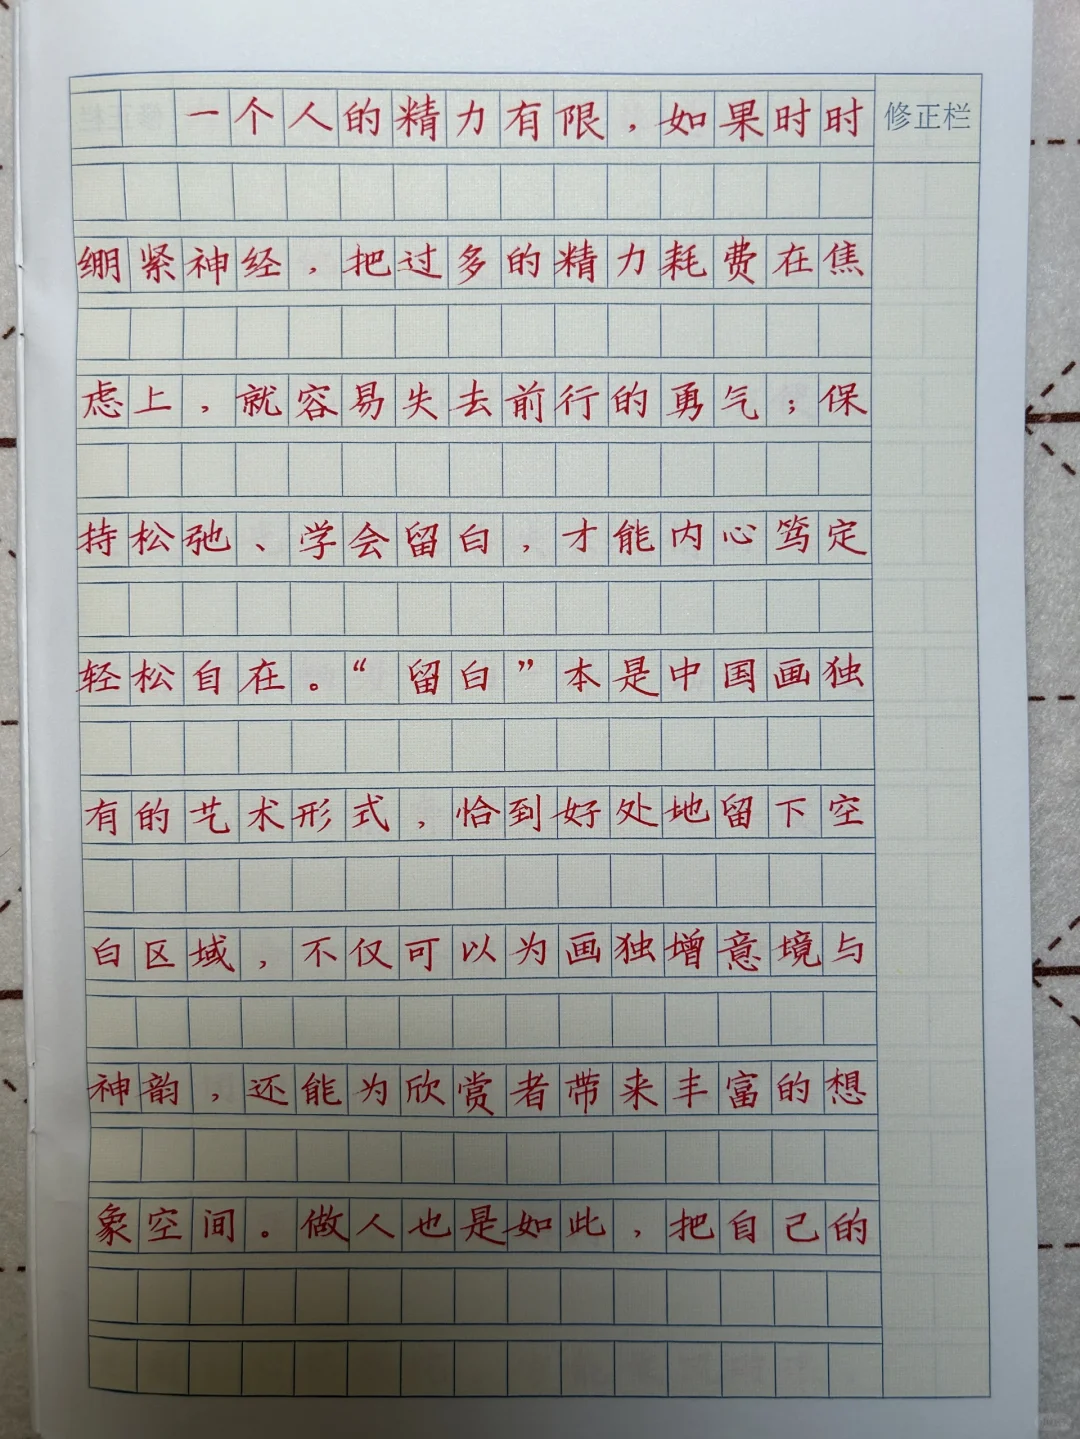 一个人的精力有限，如果时时
修正栏
绷紧神经，把过多的精力耗费在焦
虑上，就容易失去前行的勇气；保
持松弛、学会留白，才能内心笃定
轻松自在。“留白”本是中国画独
有的艺术形式，恰到好处地留下空
白区域，不仅可以为画独增意境与
神韵，还能为欣赏者带来丰富的想
象空间。做人也是如此，把自己的